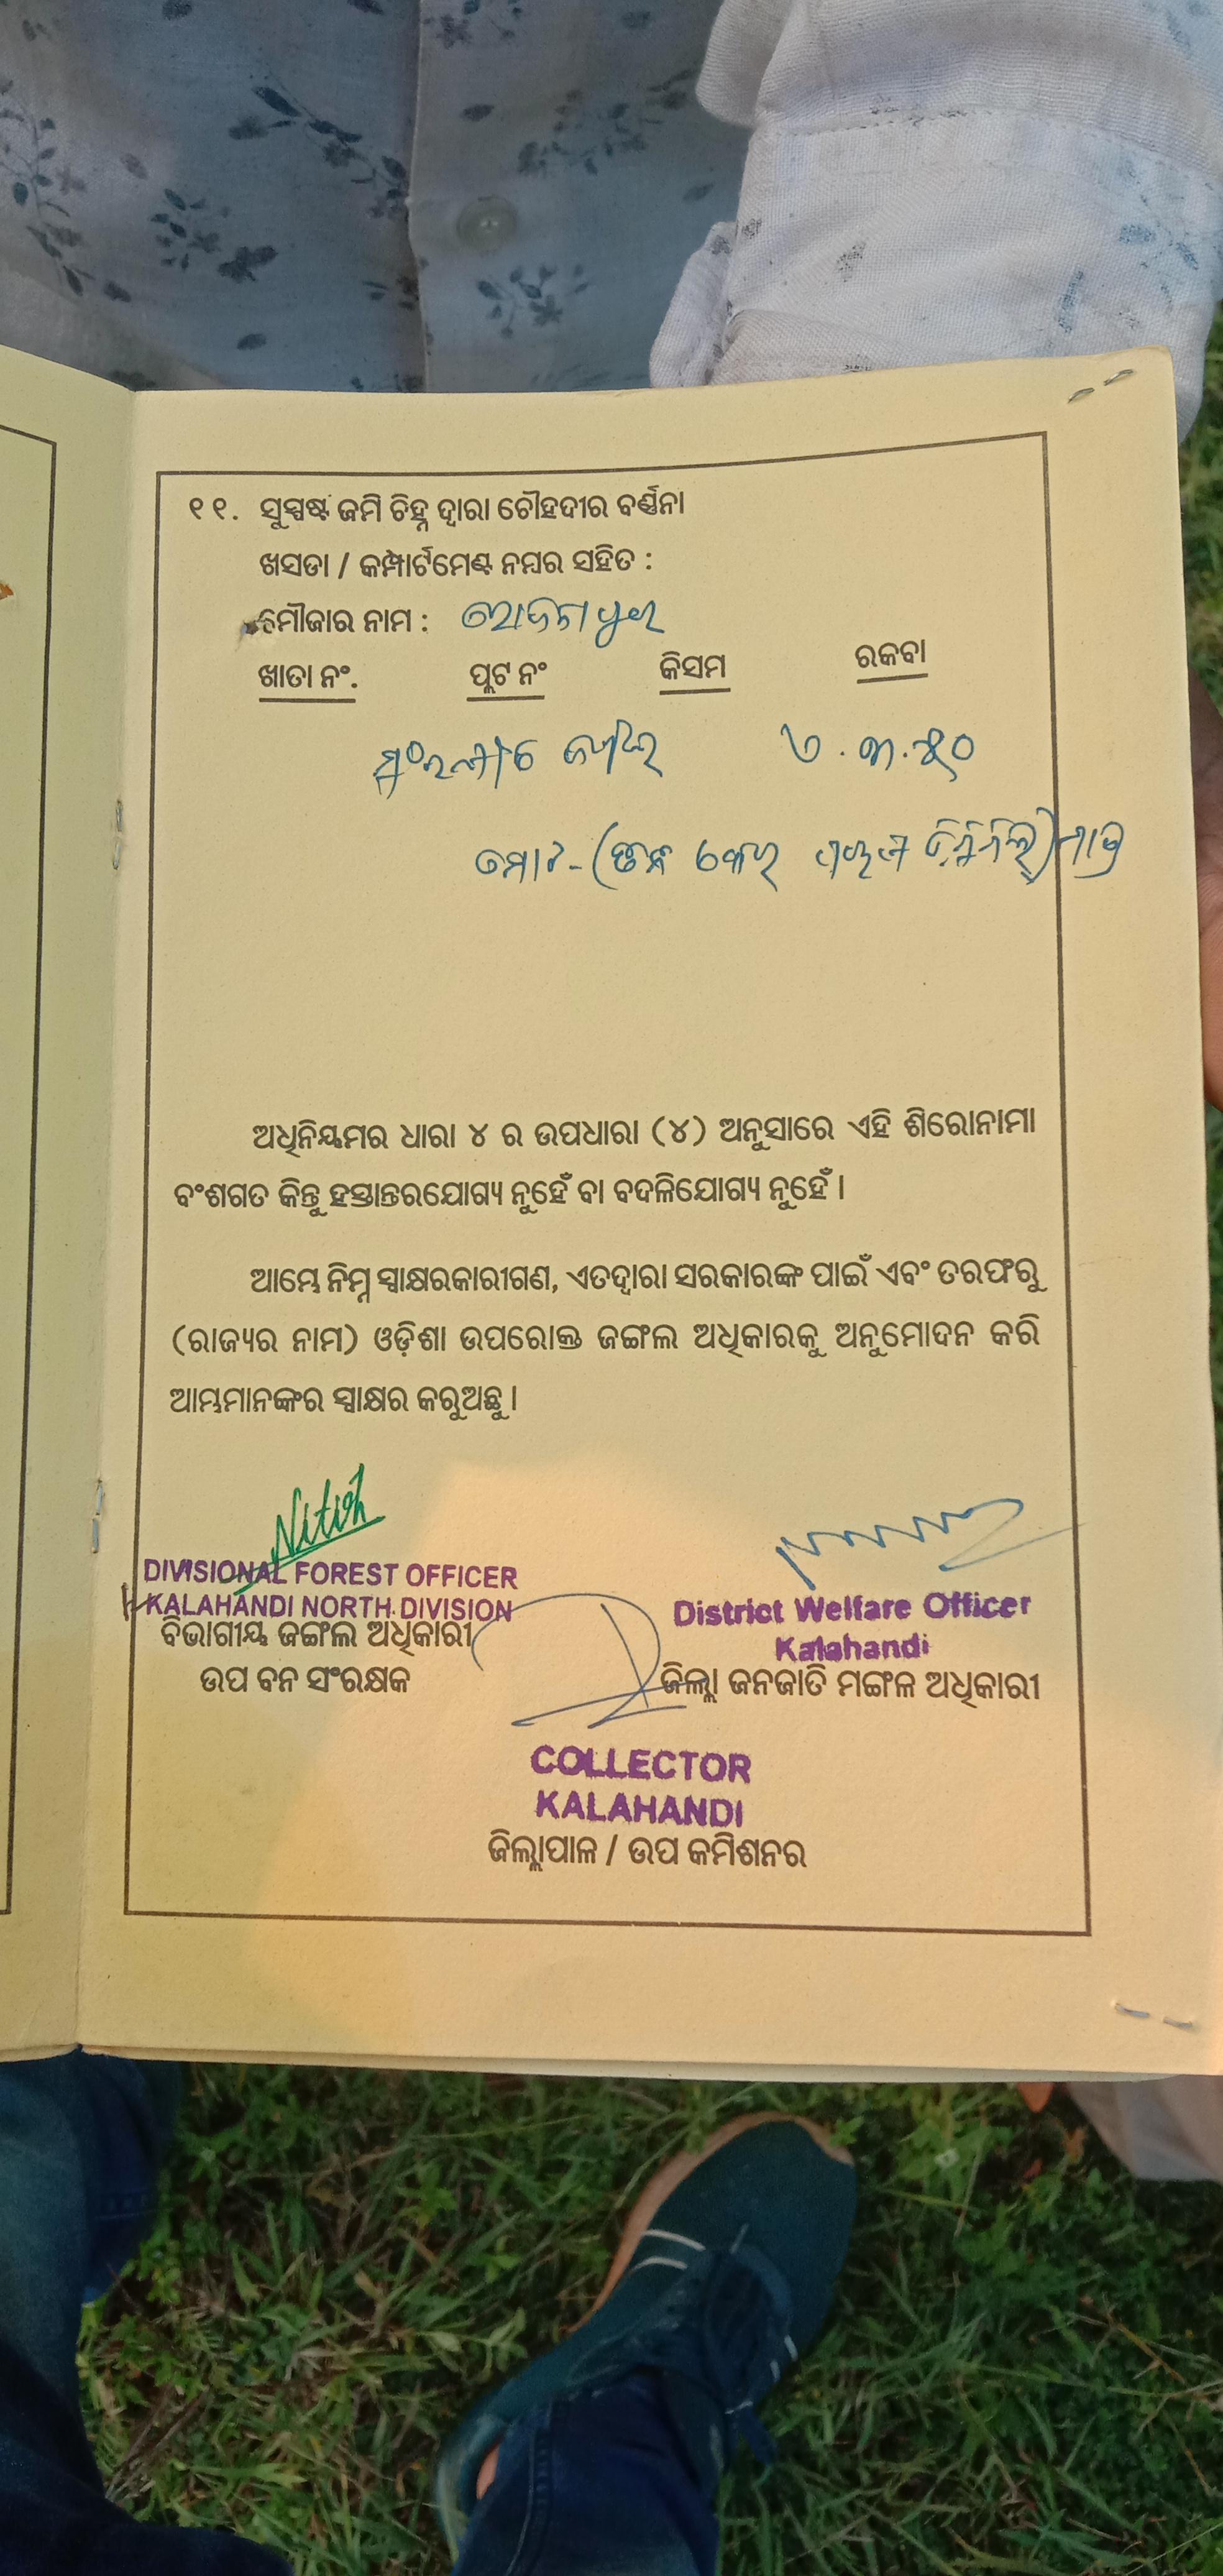 ୧୧. ସୁସ୍ପଷ୍ଟ ଜମି ଚିହ୍ନ ଦ୍ଵାରା ଚୌହଦୀର ବର୍ଣ୍ଣନା
ଖସଡା / କମ୍ପାର୍ଟମେଣ୍ଟ ନମ୍ବର ସହିତ :
ମୌଜାର ନାମ :
ଖାତା ନଂ. ପ୍ଲଟ ନଂ କିସମ ରକବା
ମୋଟ-
ଅଧିନିୟମର ଧାରା ୪ ର ଉପଧାରା (୪) ଅନୁସାରେ ଏହି ଶିରୋନାମା
ବଂଶଗତ କିନ୍ତୁ ହସ୍ତାନ୍ତରଯୋଗ୍ୟ ନୁହେଁ ବା ବଦଳିଯୋଗ୍ୟ ନୁହେଁ ।
ଆମ୍ଭେ ନିମ୍ନ ସ୍ଵାକ୍ଷରକାରୀଗଣ, ଏତଦ୍ଵାରା ସରକାରଙ୍କ ପାଇଁ ଏବଂ ତରଫରୁ
(ରାଜ୍ୟର ନାମ) ଓଡ଼ିଶା ଉପରୋକ୍ତ ଜଙ୍ଗଲ ଅଧିକାରକୁ ଅନୁମୋଦନ କରି
ଆମ୍ଭମାନଙ୍କର ସ୍ଵାକ୍ଷର କରୁଅଛୁ ।
Nitish
DIVISIONAL FOREST OFFICER
KALAHANDI NORTH DIVISION
ବିଭାଗୀୟ ଜଙ୍ଗଲ ଅଧିକାରୀ
ଉପ ବନ ସଂରକ୍ଷକ
District Welfare Officer
Kalahandi
ଜିଲ୍ଲା ଜନଜାତି ମଙ୍ଗଳ ଅଧିକାରୀ
COLLECTOR
KALAHANDI
ଜିଲ୍ଲାପାଳ / ଉପ କମିଶନର